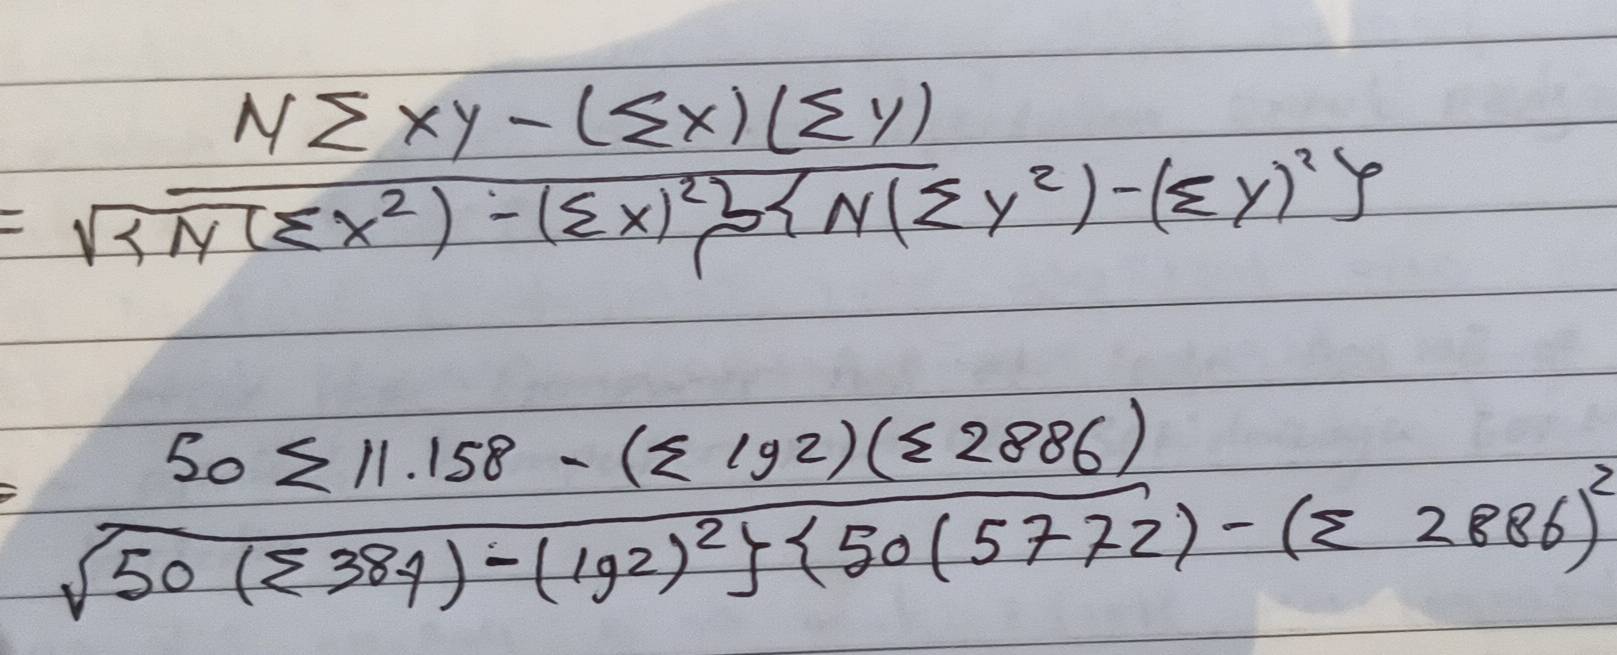 N Σ xy - (Σx)(Σy)
= √{N(Σx²) - (Σx)²}{N(Σy²) - (Σy)²}
= 50 Σ 11.158 - (Σ 192)(Σ 2886)
√50 (Σ 384) - (192)²}{50(5772) - (Σ 2886)²